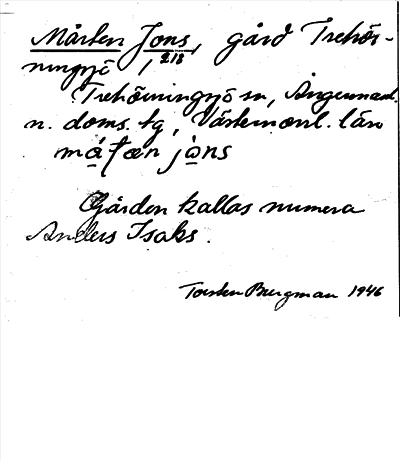 Mårten Jons, gård Trehör-
ningsjö 1/2 18
Trehörningsjö sn, Ångermanl.
n. doms. tg, Västernorrl. län
Gården kallas numera
Anders Isaks.
Torsten Bucht 1946